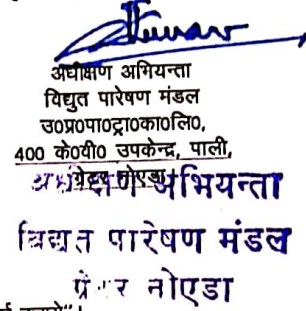 अधीक्षण अभियन्ता
विद्युत पारेषण मंडल
उ०प्र०पा०ट्रा०का०लि०,
400 के०वी० उपकेन्द्र, पाली,
ग्रेटर नोएडा
अधीक्षण अभियन्ता
विद्युत पारेषण मंडल
ग्रेटर नोएडा